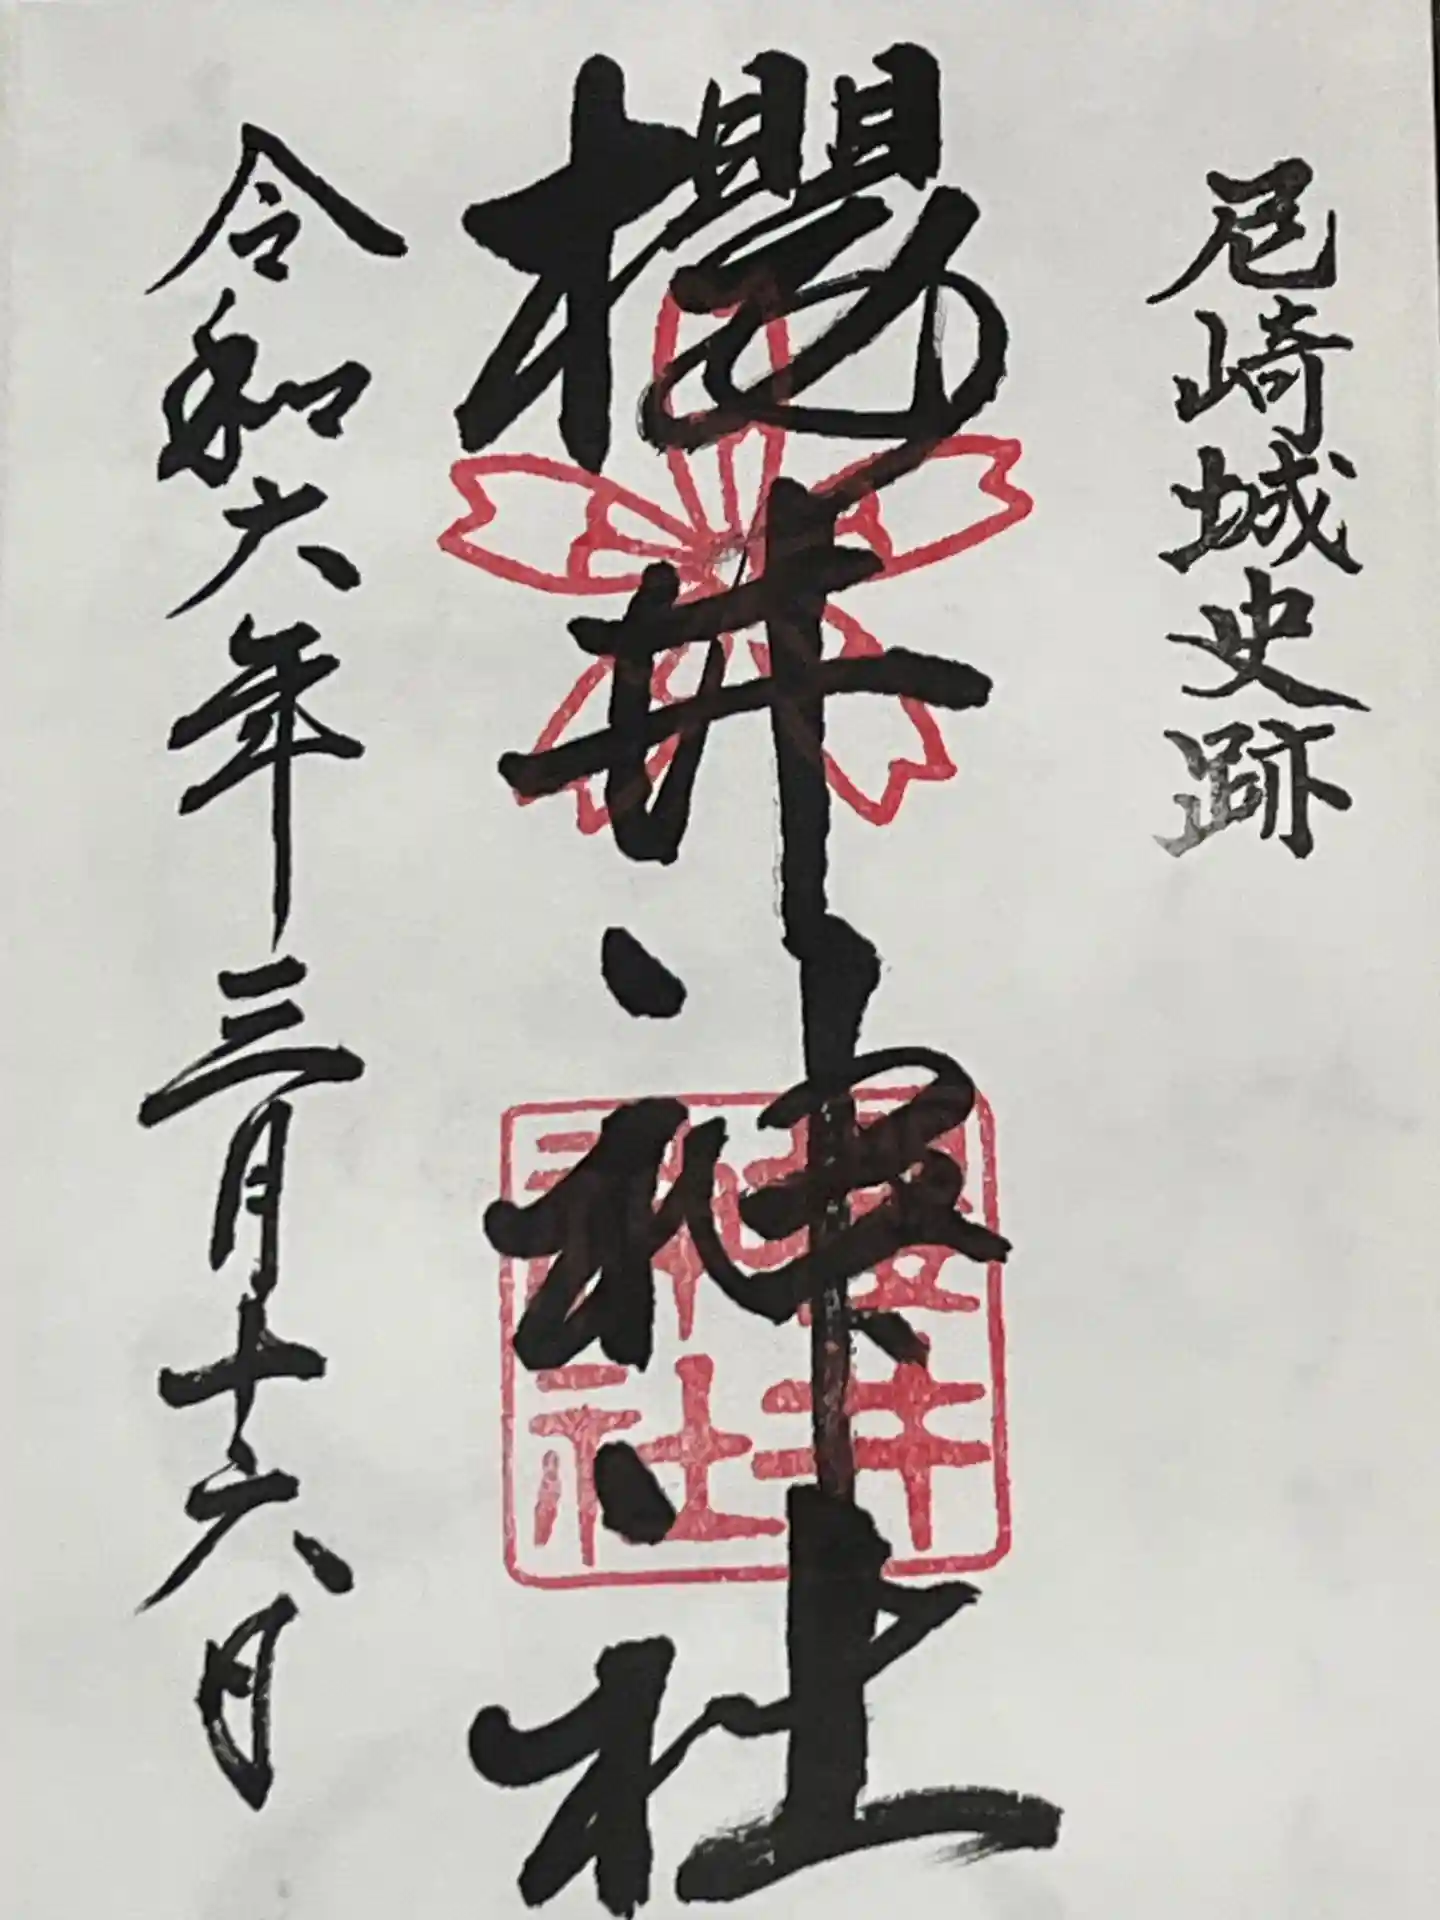 尼崎城史跡
櫻井神社
櫻井
神社
令和六年三月十六日